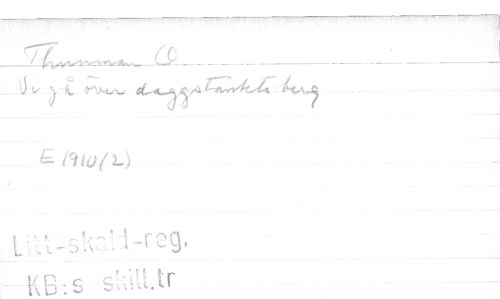 Thunman O
Vi gå över daggstänkta berg
E 1910(2)
Litt-skald-reg.
KB:s skill.tr